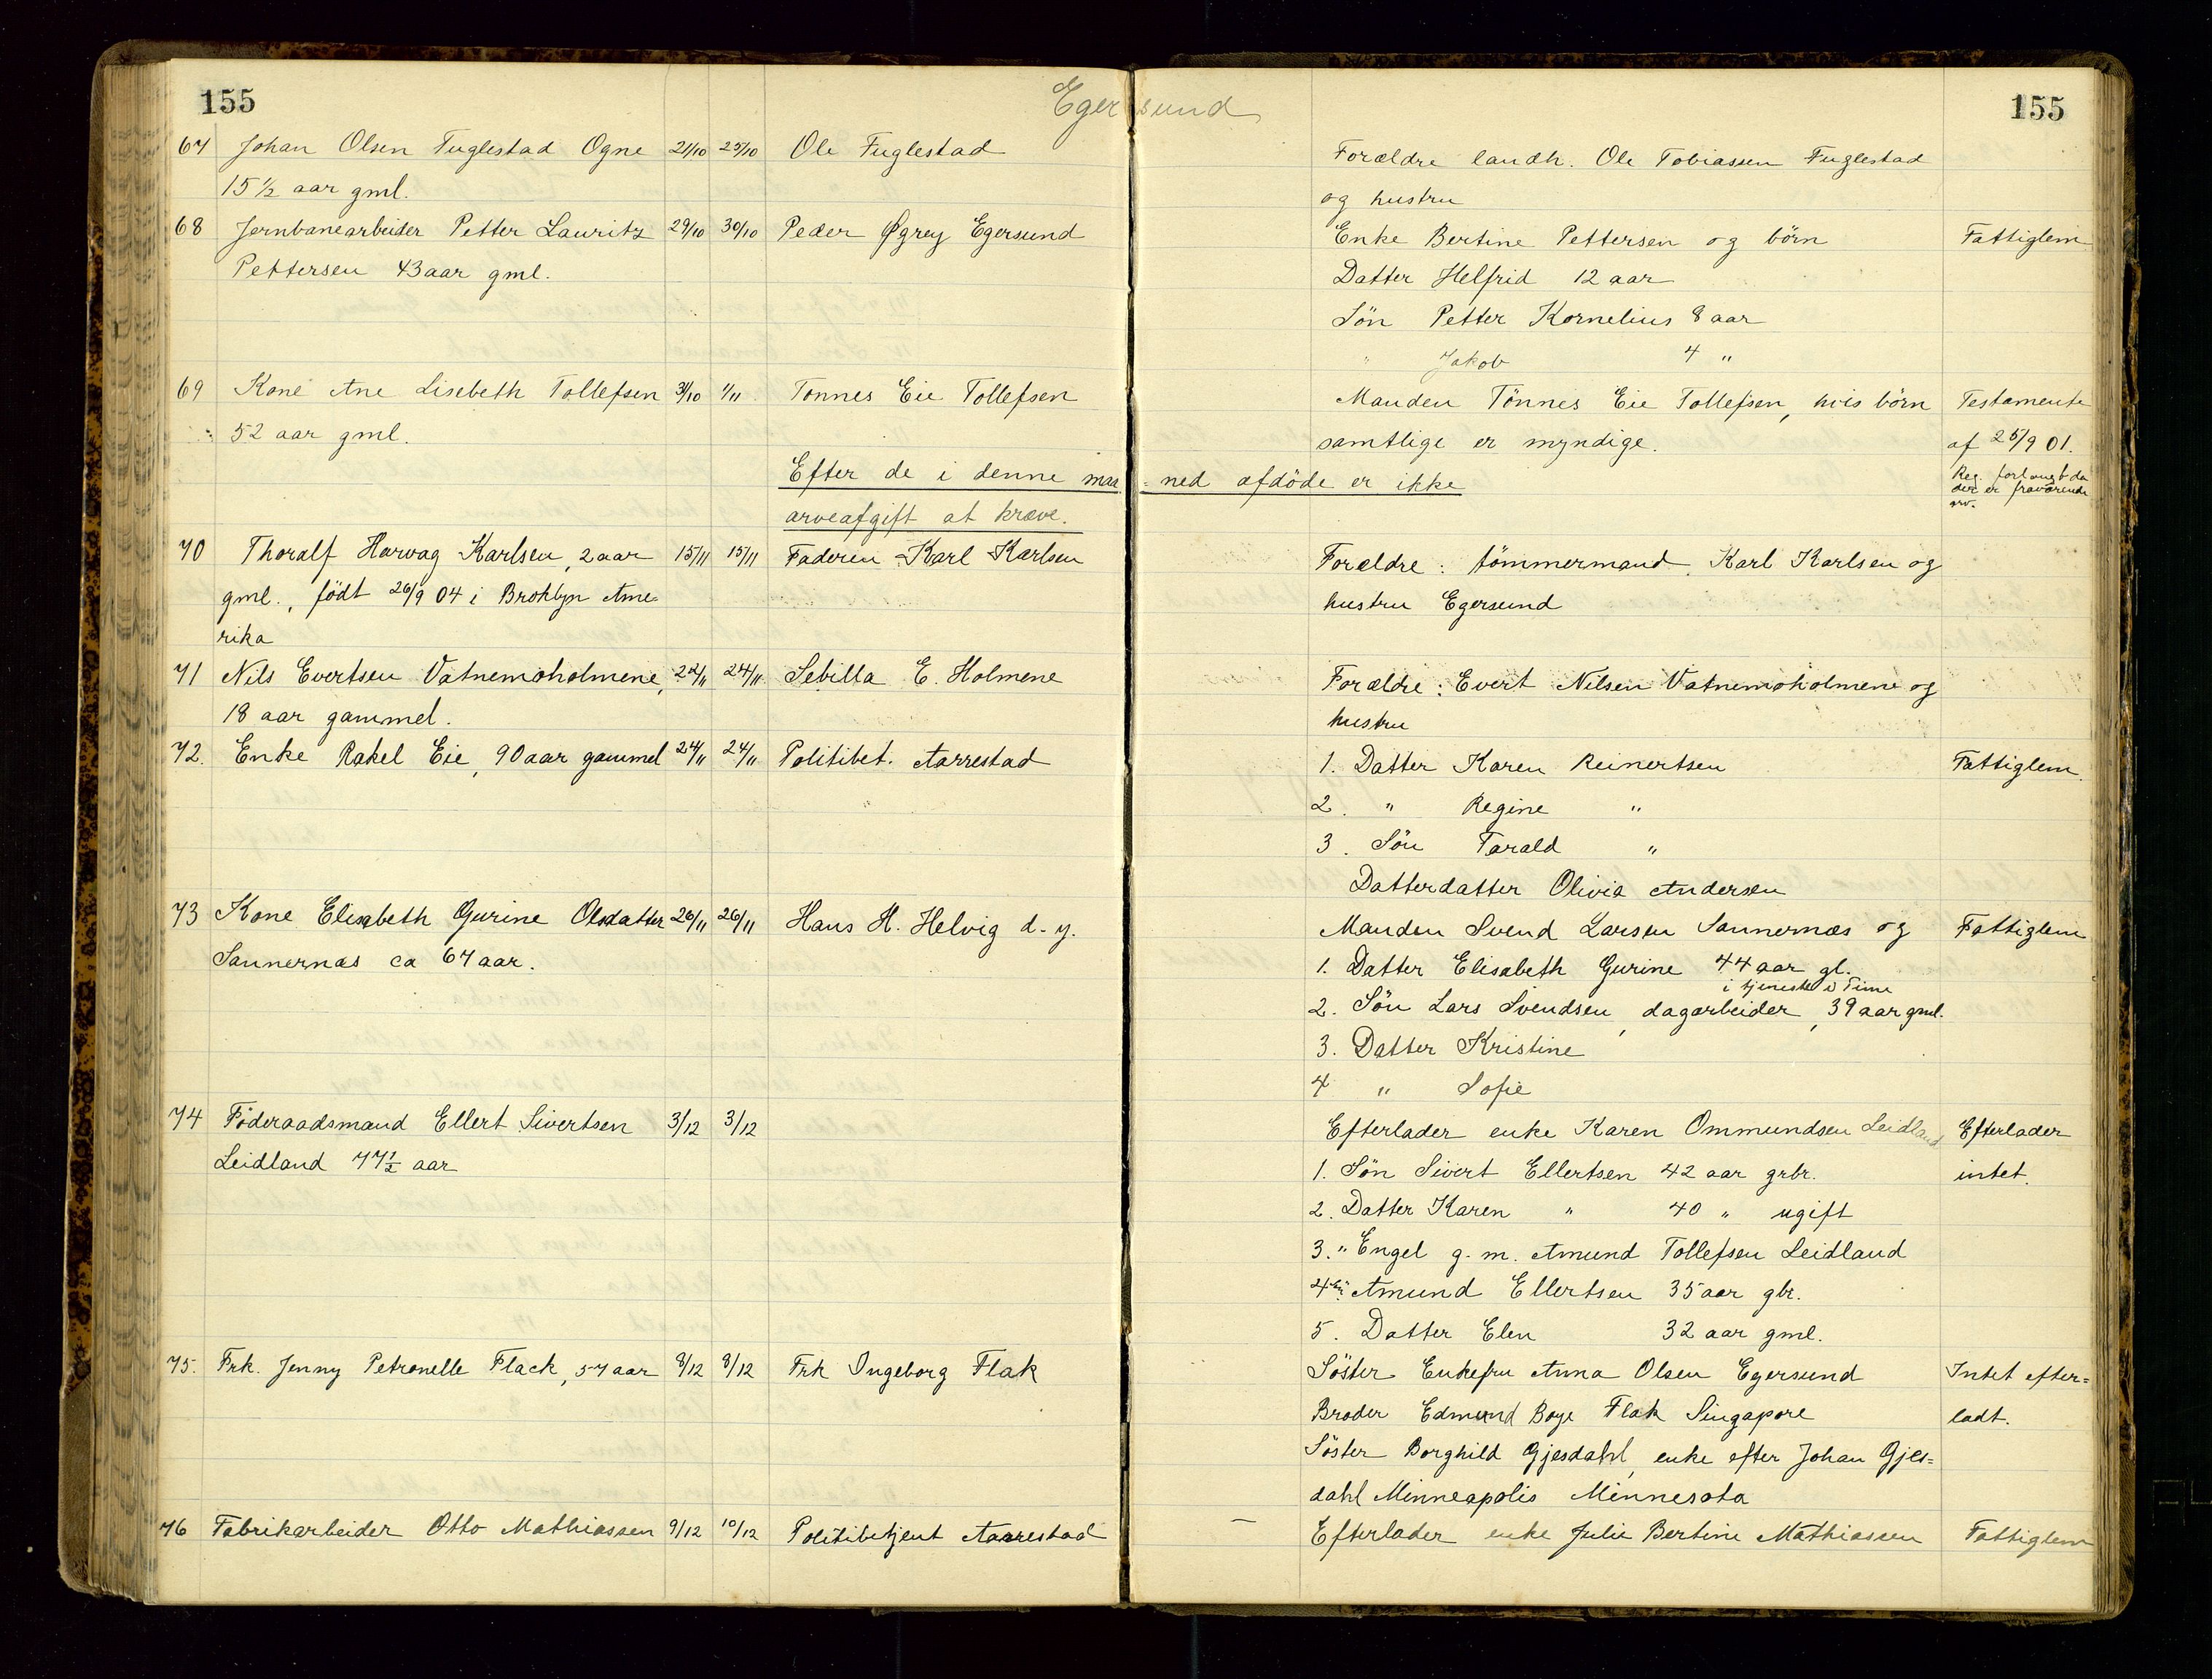 155
Egersund
155
67 Johan Olsen Fuglestad Ogne 21/10 25/10 Ole Fuglestad Forældre landh. Ole Tobiassen Fuglestad
15 1/2 aar gml. og hustru
68 Jernbanearbeider Petter Lauritz 29/10 30/10 Peder Øgrey Egersund Enke Bertine Pettersen og börn Fattiglem
Pettersen 43 aar gml. Datter Helfrid 12 aar
Sön Petter Kornelius 8 aar
" Jakob 4 "
69 Kone Ane Lisebeth Tollefsen 31/10 1/11 Tonnes Eie Tollefsen Manden Tönnes Eie Tollefsen, hvis börn Testamente
52 aar gml. samtlige er myndige. af 25/9 01.
Efter de i denne maa=ned afdöde er ikke Reg. forlangt da
der er fraværende
arv.
arveafgift at kræve.
70 Thoralf Harvag Karlsen, 2 aar 15/11 15/11 Faderen Karl Karlsen Forældre: tömmermand Karl Karlsen og
gml., födt 26/9 04 i Broklyn Ame= hustru Egersund
rika
71 Nils Evertsen Vatnemoholmene, 22/11 24/11 Sebilla E. Holmene Forældre: Evert Nilsen Vatnemoholmene og
18 aar gammel. hustru
72. Enke Rakel Eie, 90 aar gammel 24/11 24/11 Politibet. Aarrestad 1. Datter Karen Reinertsen Fattiglem.
2. " Regine "
3. Sön Tarald "
Datterdatter Olivia Andersen
73 Kone Elisabeth Gurine Olsdatter 26/11 26/11 Hans H. Helvig d. y. Manden Svend Larsen Sannernæs og Fattiglem
Sannernæs ca 67 aar. 1. Datter Elisabeth Gurine 44 aar gl.
i tjeneste i Time
2. Sön Lars Svendsen, dagarbeider, 39 aar gml.
3. Datter Kristine
4 " Sofie
74 Föderaadsmand Ellert Sivertsen 3/12 3/12 Efterlader enke Karen Ommundsen Leidland Efterlader
Leidland 77 1/2 aar 1. Sön Sivert Ellertsen 42 aar grbr. intet.
2. Datter Karen " 40 " ugift
3. " Engel g. m. Amund Tollefsen Leidland
4 Sön Amund Ellertsen 35 aar gbr.
5. Datter Elen 32 aar gml.
75. Frk. Jenny Petronelle Flack, 57 aar 8/12 8/12 Frk Ingeborg Flak Söster Enkefru Anna Olsen Egersund Intet efter=
Broder Edmund Boye Flak Singapore ladt.
Söster Borghild Gjesdahl, enke efter Johan Gjes=
dahl Minneapolis Minnesota
76 Fabrikarbeider Otto Mathiassen 9/12 10/12 Politibetjent Aarrestad — Efterlader enke Julie Bertine Mathiassen Fattiglem